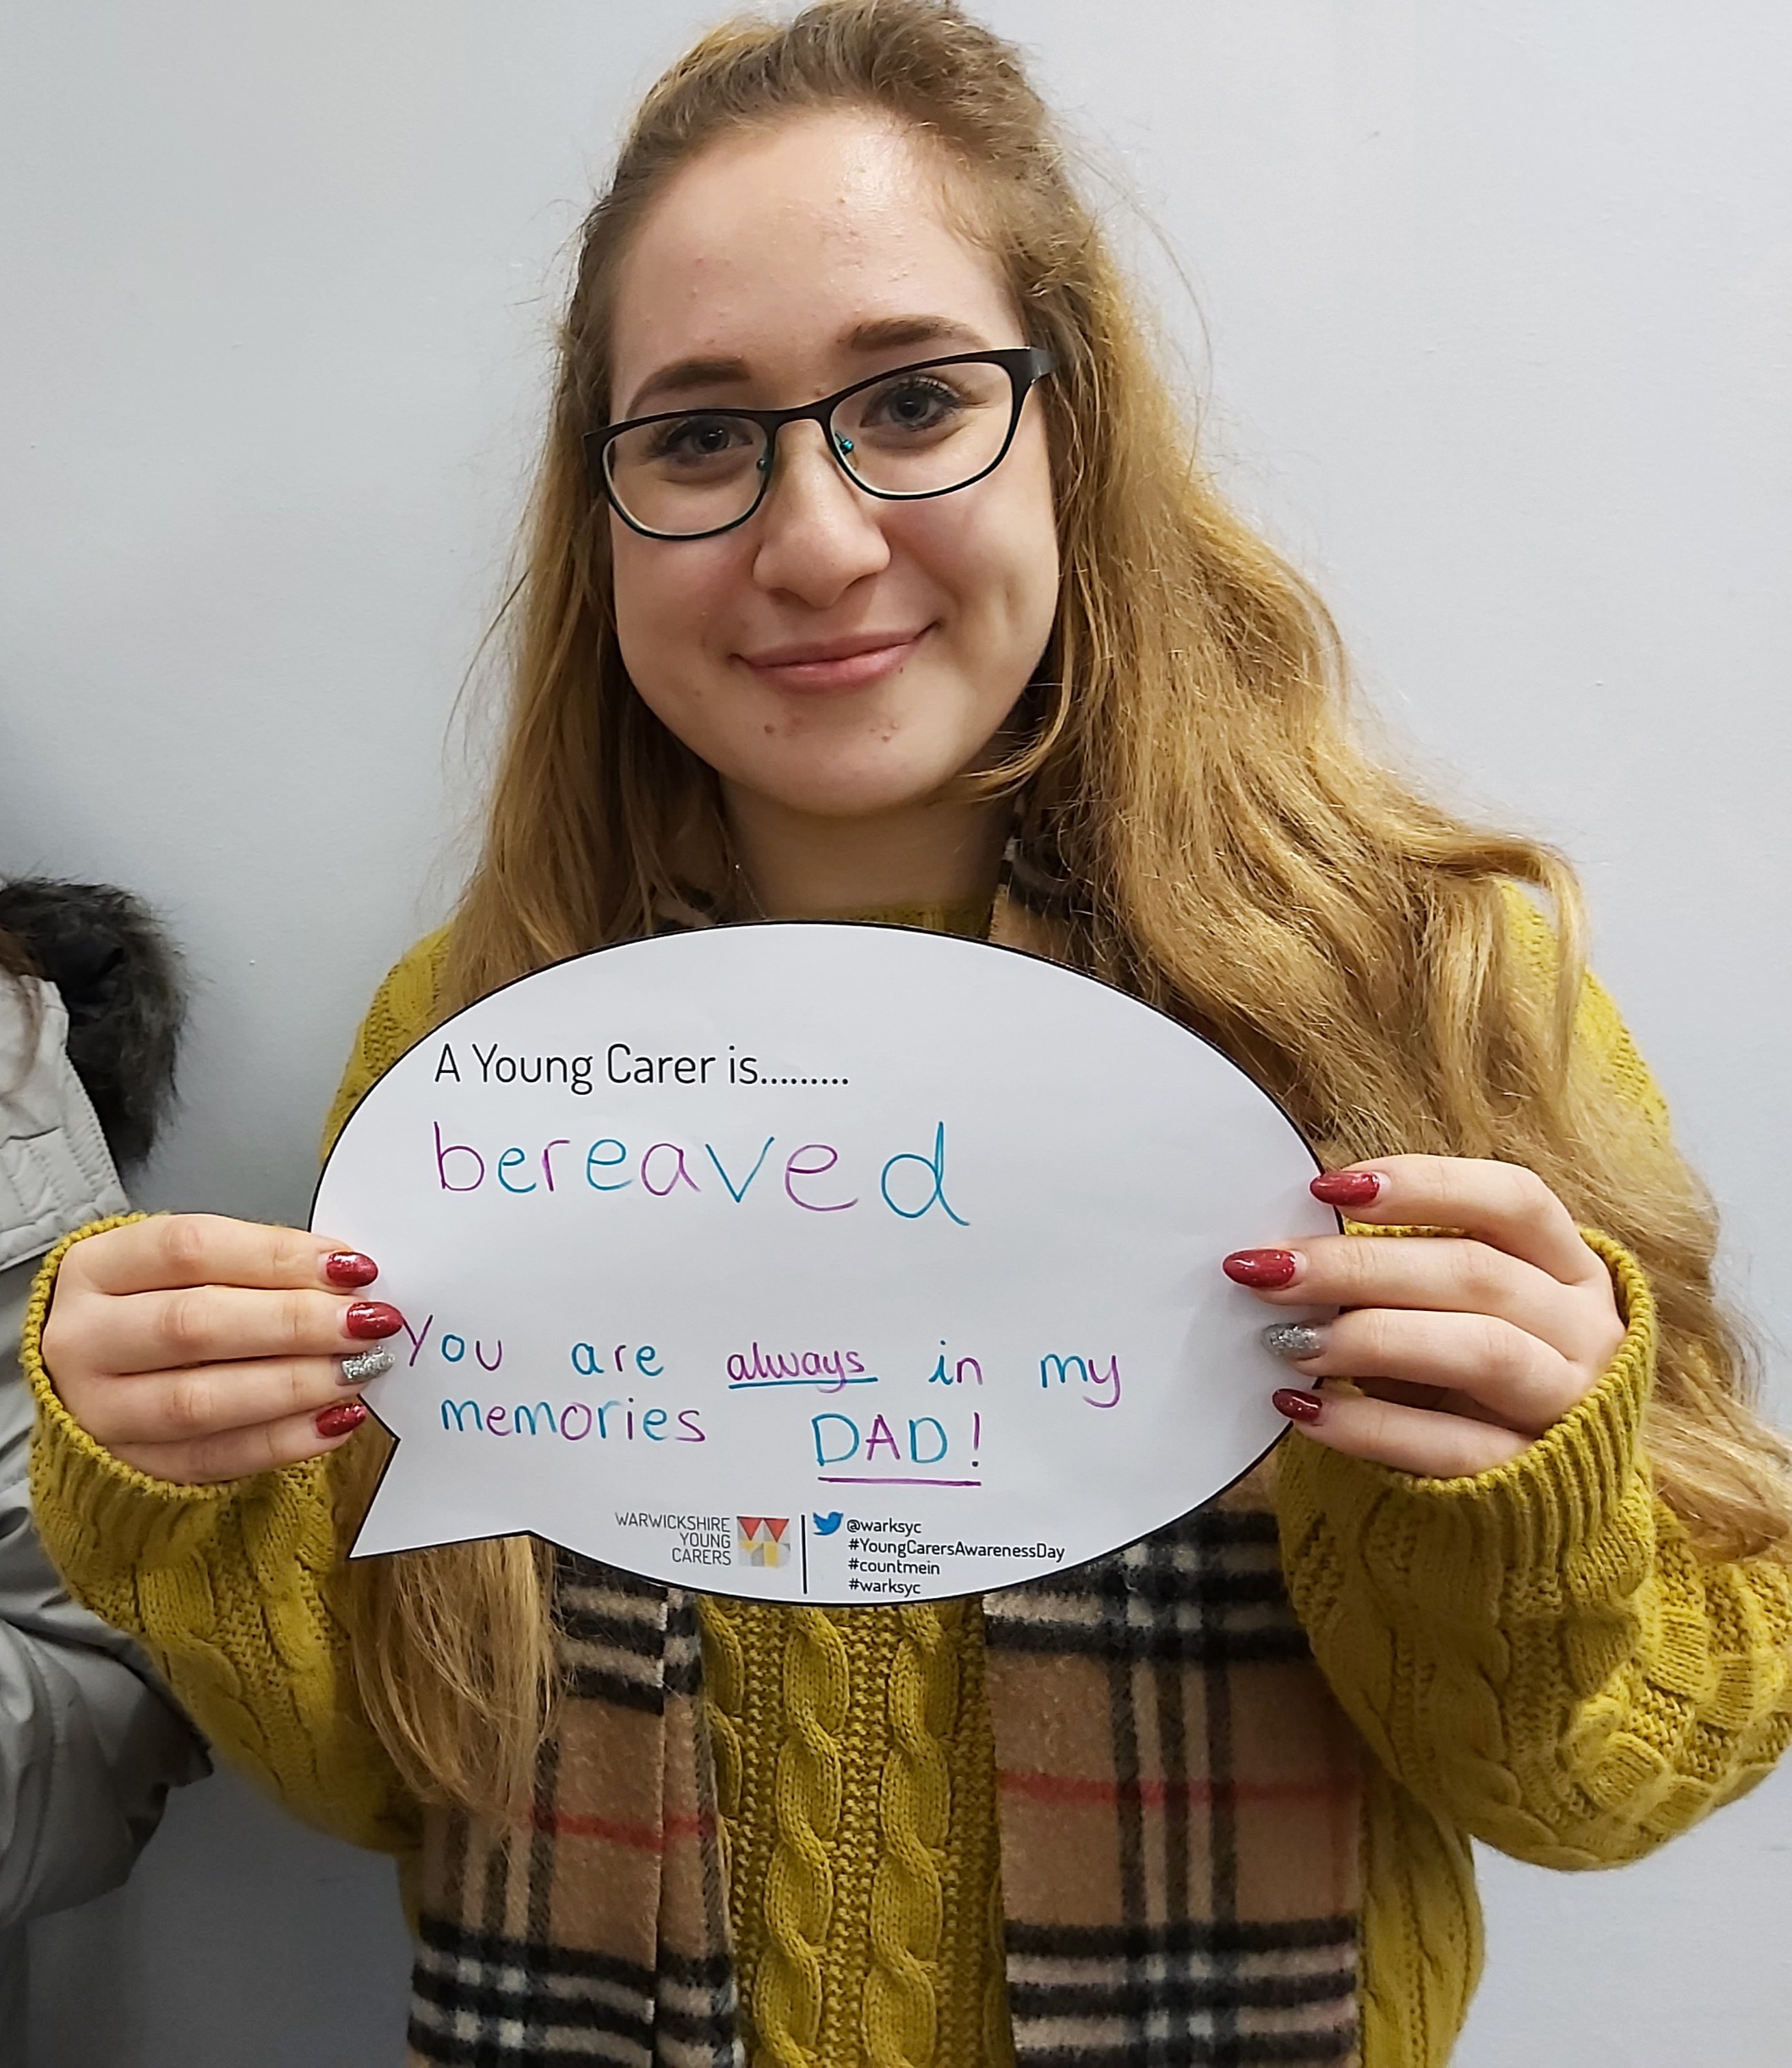 A Young Carer is.........
bereaved
You are always in my
memories DAD!
WARWICKSHIRE
YOUNG
CARERS
@warksyc
#YoungCarersAwarenessDay
#countmein
#warksyc